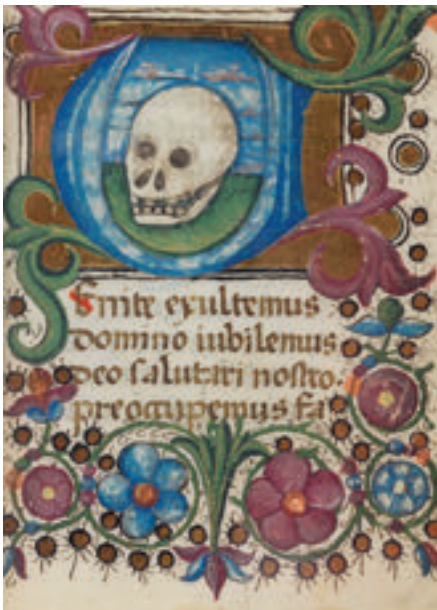 Venite exultemus
domino iubilemus
deo salutari nostro.
preoccupemus fa